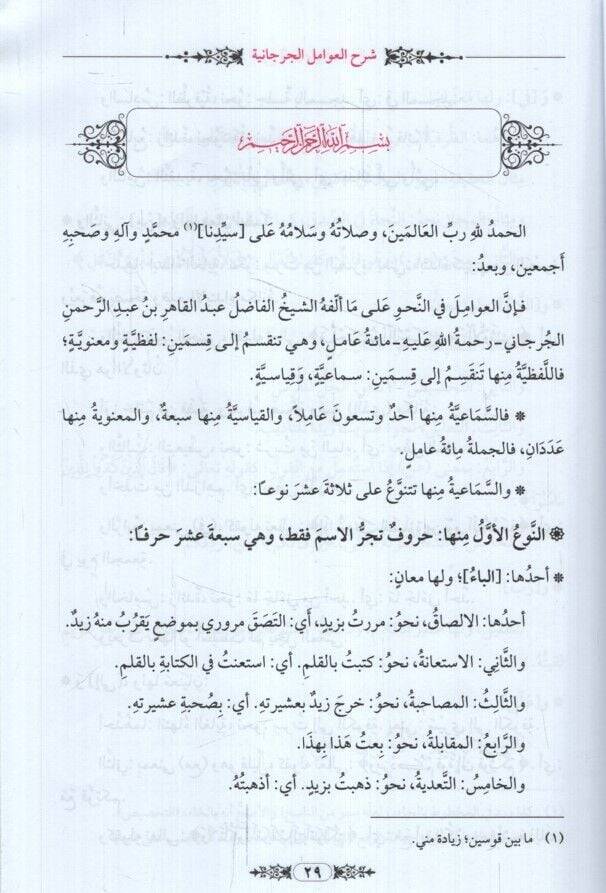 شرح العوامل الجرجانية
بسم الله الرحمن الرحيم
الحمدُ للهِ ربِّ العَالمَينَ، وصلاتُهُ وسَلامُهُ عَلى [سيِّدِنا](١) محمَّدٍ وآلهِ وصَحبِهِ
أجمعين، وبعدُ:
فإنَّ العوامِلَ في النَّحوِ عَلى مَا ألّفهُ الشيخُ الفاضلُ عبدُ القاهرِ بنُ عبدِ الرَّحمنِ
الجُرجاني-رحمةُ اللهِ عَليهِ-مائةُ عَاملٍ، وهي تنقسمُ إلى قِسمَينِ: لفظيَّةٍ ومعنويَّةٍ؛
فاللَّفظيَّةُ مِنها تَنقَسِمُ إلى قِسمَينِ: سماعيَّةٍ، وَقِياسيَّةٍ.
* فالسَّمَاعيَّةُ مِنها أحدٌ وتسعونَ عَامِلاً، والقياسيَّةُ مِنها سبعةٌ، والمعنويةُ مِنها
عَدَدَانِ، فالجملةُ مِائةُ عاملٍ.
* والسَّماعيةُ مِنها تتنوَّعُ على ثلاثةَ عشرَ نوعاً:
❁ النَّوعُ الأوَّلُ مِنها: حروفٌ تَجرُّ الاسمَ فقط، وهي سبعةَ عشرَ حرفًا:
* أحدُها: [الباءُ]؛ ولها معانٍ:
أحدُها: الالصاقُ، نحوُ: مررتُ بزيدٍ، أَي: التَصَقَ مروري بموضعٍ يَقرُبُ مِنهُ زيدٌ.
والثَّانِي: الاستعانةُ، نحوُ: كتبتُ بالقلمِ. أي: استعنتُ في الكتابةِ بالقلمِ.
والثَّالِثُ: المصاحبةُ، نحوُ: خرجَ زيدٌ بعشيرتهِ. أي: بِصُحبةِ عشيرتهِ.
والرَّابعُ: المقابلةُ، نحوُ: بعتُ هَذا بِهذَا.
والخامِسُ: التَّعديةُ، نحوُ: ذهبتُ بزيدٍ. أي: أذهبتُهُ.
(١) ما بين قوسين؛ زيادة مني.
٢٩